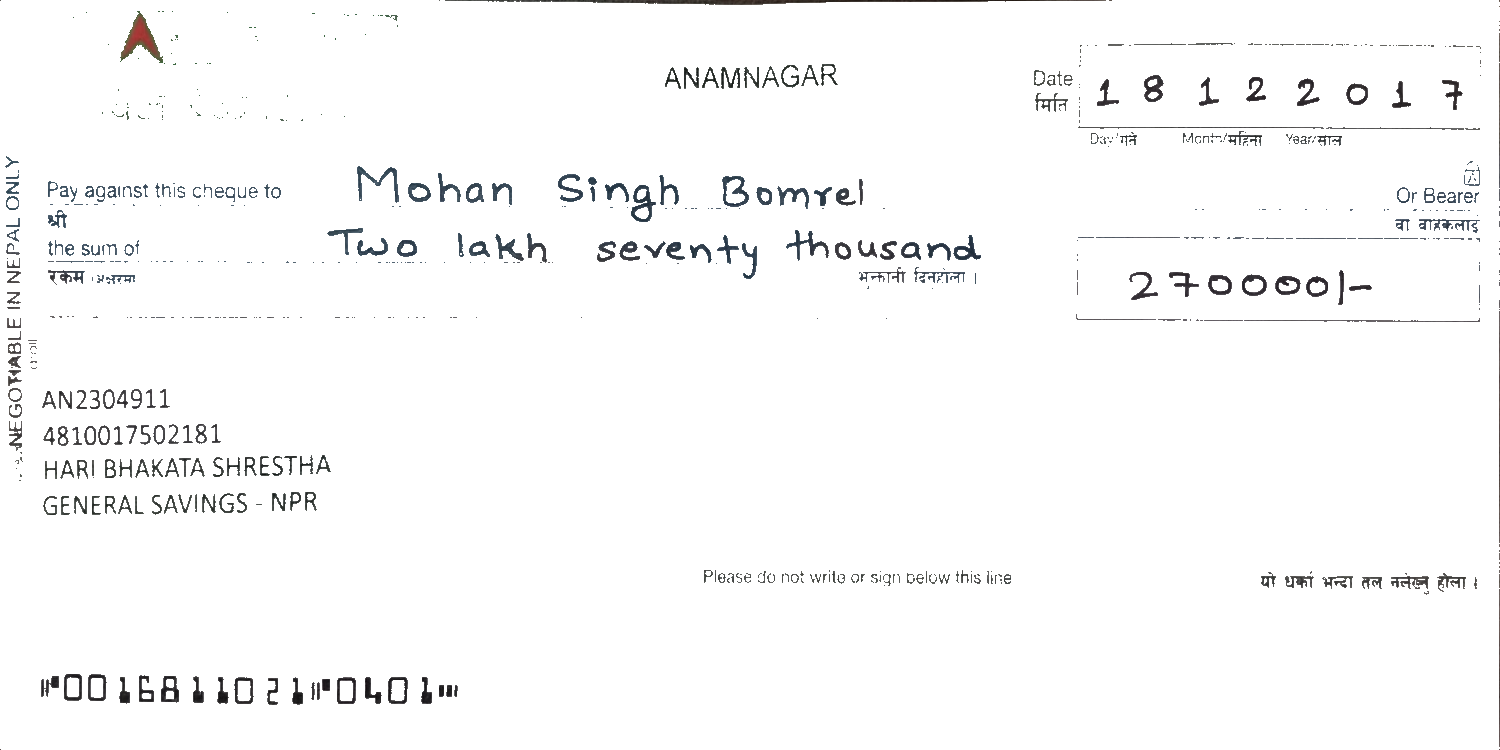 ANAMNAGAR
Date
मिति
1 8 1 2 2 0 1 7
Day/गते Month/महिना Year/साल
Pay against this cheque to Mohan Singh Bomrel Or Bearer
श्री वा वाहकलाई
the sum of Two lakh seventy thousand
रकम भुक्तानी दिनुहोला । 270000/-
NEGOTIABLE IN NEPAL ONLY
AN2304911
4810017502181
HARI BHAKATA SHRESTHA
GENERAL SAVINGS - NPR
Please do not write or sign below this line यो धर्का भन्दा तल नलेख्नु होला ।
⑈0016811021⑈0401⑈